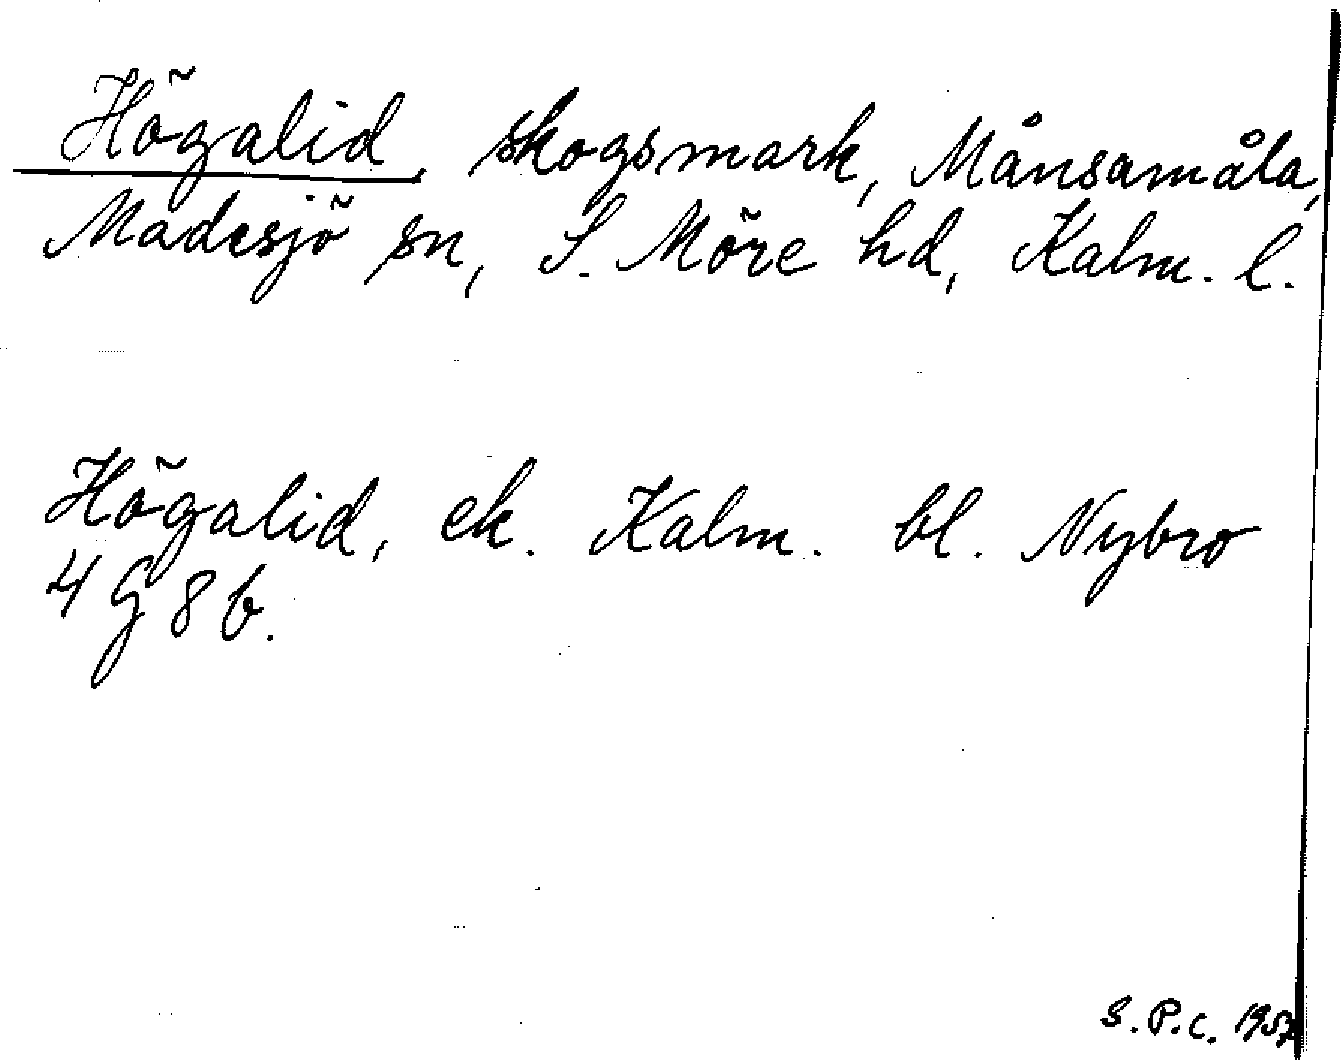 Högalid, skogsmark, Månsamåla,
Madesjö sn, S. Möre hd, Kalm. l.
Högalid, ek. Kalm. bl. Nybro
4 G 8 b.
S.P.C. 1957